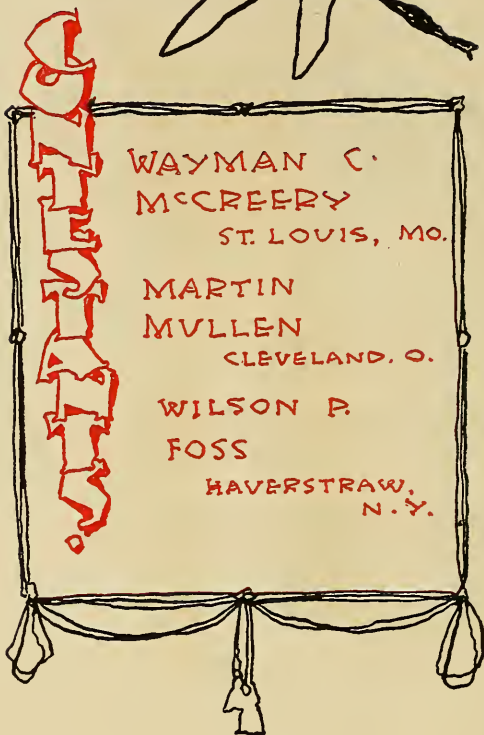 CONTESTANTS.
WAYMAN C.
McCREERY
ST. LOUIS, MO.
MARTIN
MULLEN
CLEVELAND. O.
WILSON P.
FOSS
HAVERSTRAW,
N.Y.